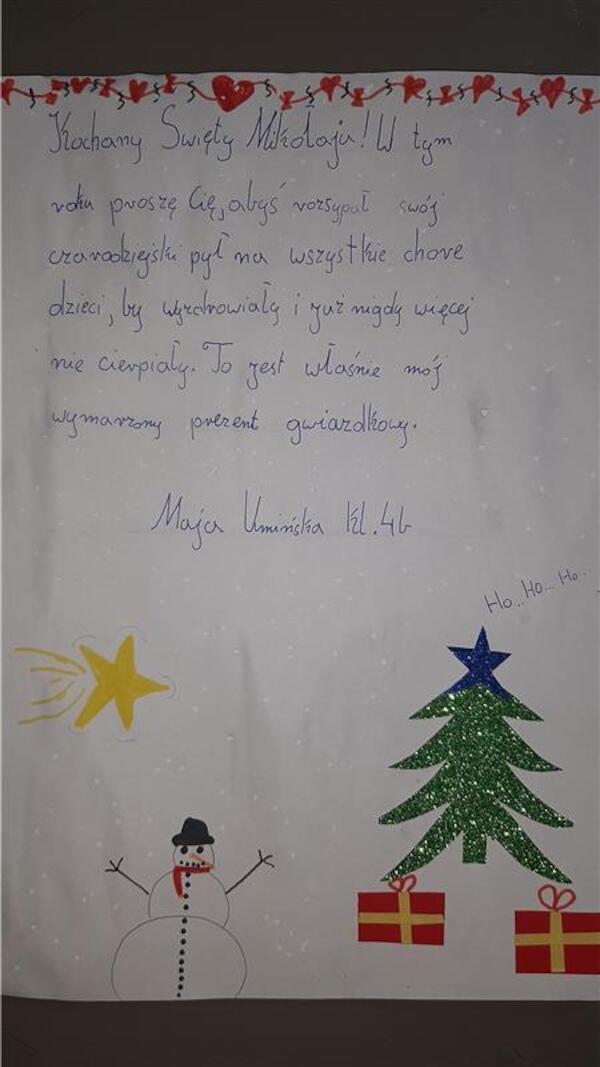 Kochany Święty Mikołaju! W tym
roku proszę Cię, abyś rozsypał swój
czarodziejski pył na wszystkie chore
dzieci, by wyzdrowiały i już nigdy więcej
nie cierpiały. To jest właśnie mój
wymarzony prezent gwiazdkowy.
Maja Umińska kl. 4b
Ho... Ho... Ho...